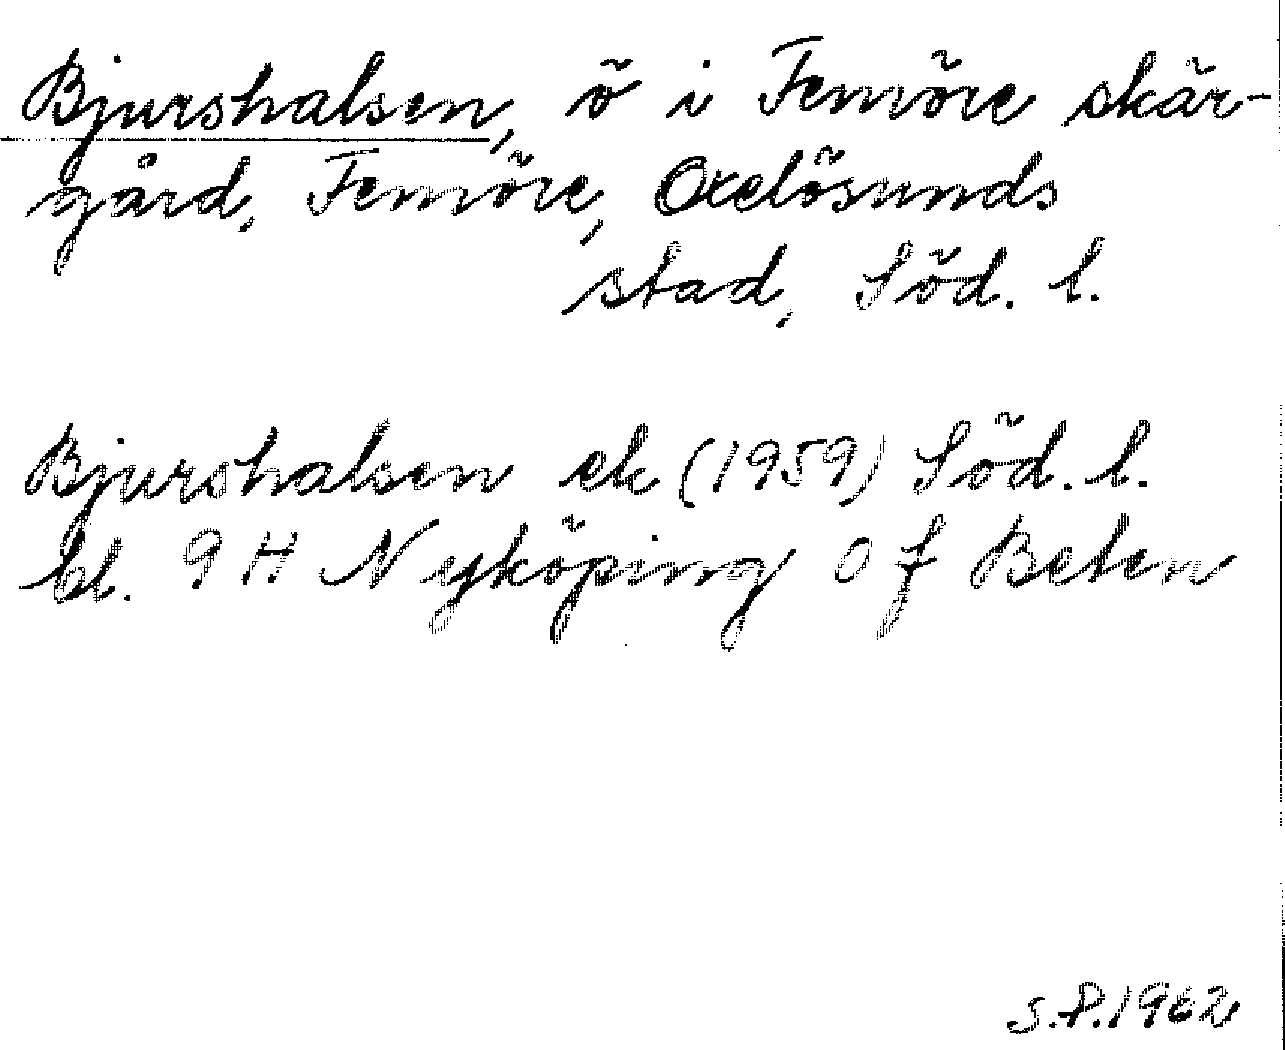 Bjurshalsen, ö i Femöre skär-
gård, Femöre, Oxelösunds
stad, Söd. l.
Bjurshalsen ek (1959) Söd. l.
bl. 9 H Nyköping 0 f Beten
S.P. 1962